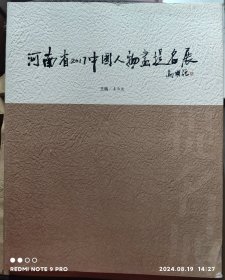 河南省2017中國人物畫提名展
主编
REDMI NOTE 9 PRO
2024.08.19 14:27